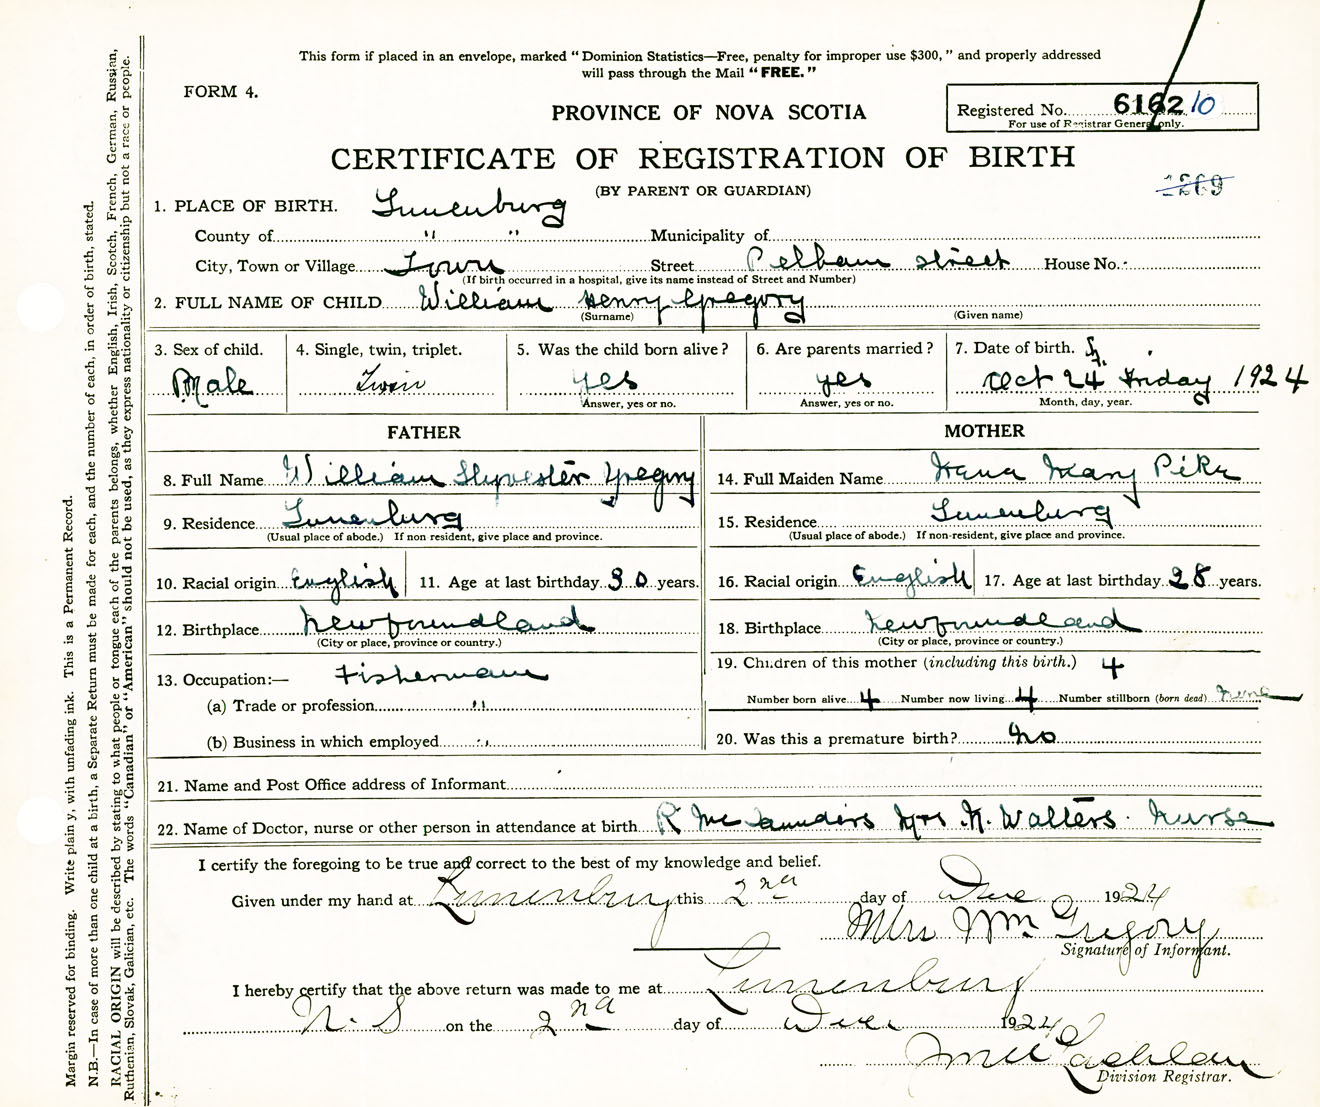 This form if placed in an envelope, marked "Dominion Statistics—Free, penalty for improper use $300," and properly addressed
will pass through the Mail "FREE."
FORM 4.
PROVINCE OF NOVA SCOTIA
Registered No. 6162 10
For use of Registrar General only.
CERTIFICATE OF REGISTRATION OF BIRTH
(BY PARENT OR GUARDIAN)
1269
1. PLACE OF BIRTH. Lunenburg
County of " " Municipality of
City, Town or Village Town Street Pelham street House No.
(If birth occurred in a hospital, give its name instead of Street and Number)
2. FULL NAME OF CHILD William Henry Gregory
(Surname) (Given name)
3. Sex of child. 4. Single, twin, triplet. 5. Was the child born alive? 6. Are parents married? 7. Date of birth.
Male Twin yes yes Oct 24 Friday 1924
Answer, yes or no. Answer, yes or no. Month, day, year.
FATHER MOTHER
8. Full Name William Slyvester Gregory 14. Full Maiden Name Mary Pike
9. Residence Lunenburg 15. Residence Lunenburg
(Usual place of abode.) If non resident, give place and province. (Usual place of abode.) If non-resident, give place and province.
10. Racial origin English 11. Age at last birthday 30 years. 16. Racial origin English 17. Age at last birthday 28 years.
12. Birthplace Newfoundland 18. Birthplace Newfoundland
(City or place, province or country.) (City or place, province or country.)
13. Occupation:— Fisherman 19. Children of this mother (including this birth.) 4
(a) Trade or profession " Number born alive 4 Number now living 4 Number stillborn (born dead) none
(b) Business in which employed " 20. Was this a premature birth? no
21. Name and Post Office address of Informant
22. Name of Doctor, nurse or other person in attendance at birth R Saunders Mrs Walters. Nurse
I certify the foregoing to be true and correct to the best of my knowledge and belief.
Given under my hand at Lunenburg this 2nd day of Dec 1924
Mrs Wm Gregory
Signature of Informant.
I hereby certify that the above return was made to me at Lunenburg
N. S on the 2nd day of Dec 1924
Division Registrar.
Margin reserved for binding. Write plainly, with unfading ink. This is a Permanent Record.
N.B.—In case of more than one child at a birth, a Separate Return must be made for each, and the number of each, in order of birth, stated.
RACIAL ORIGIN will be described by stating to what people or tongue each of the parents belongs, whether English, Irish, Scotch, French, German, Russian,
Ruthenian, Slovak, Galician, etc. The words "Canadian" or "American" should not be used, as they express nationality or citizenship but not a race or people.